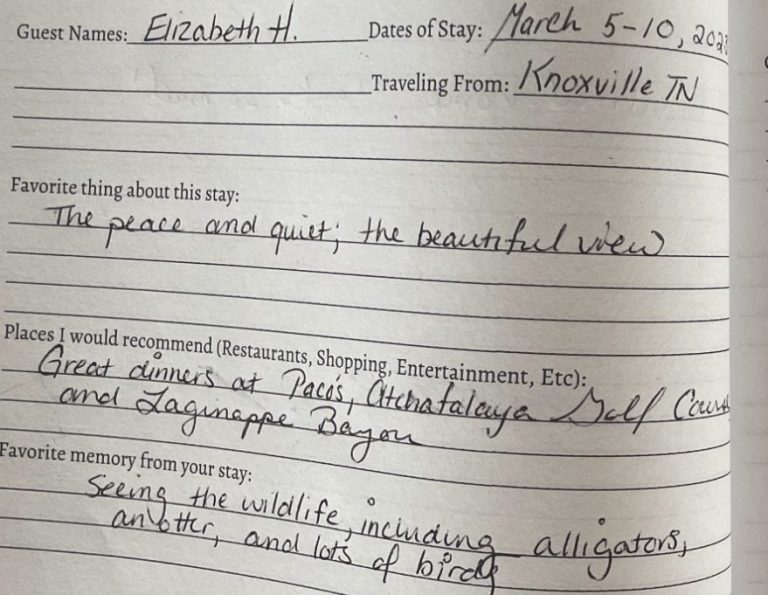 Guest Names: Elizabeth H. Dates of Stay: March 5-10, 202
Traveling From: Knoxville TN
Favorite thing about this stay:
The peace and quiet; the beautiful view
Places I would recommend (Restaurants, Shopping, Entertainment, Etc):
Great dinners at Paco's, Atchafalaya Golf Course
and Laginappe Bayou
Favorite memory from your stay:
Seeing the wildlife, including alligators,
an otter, and lots of birds